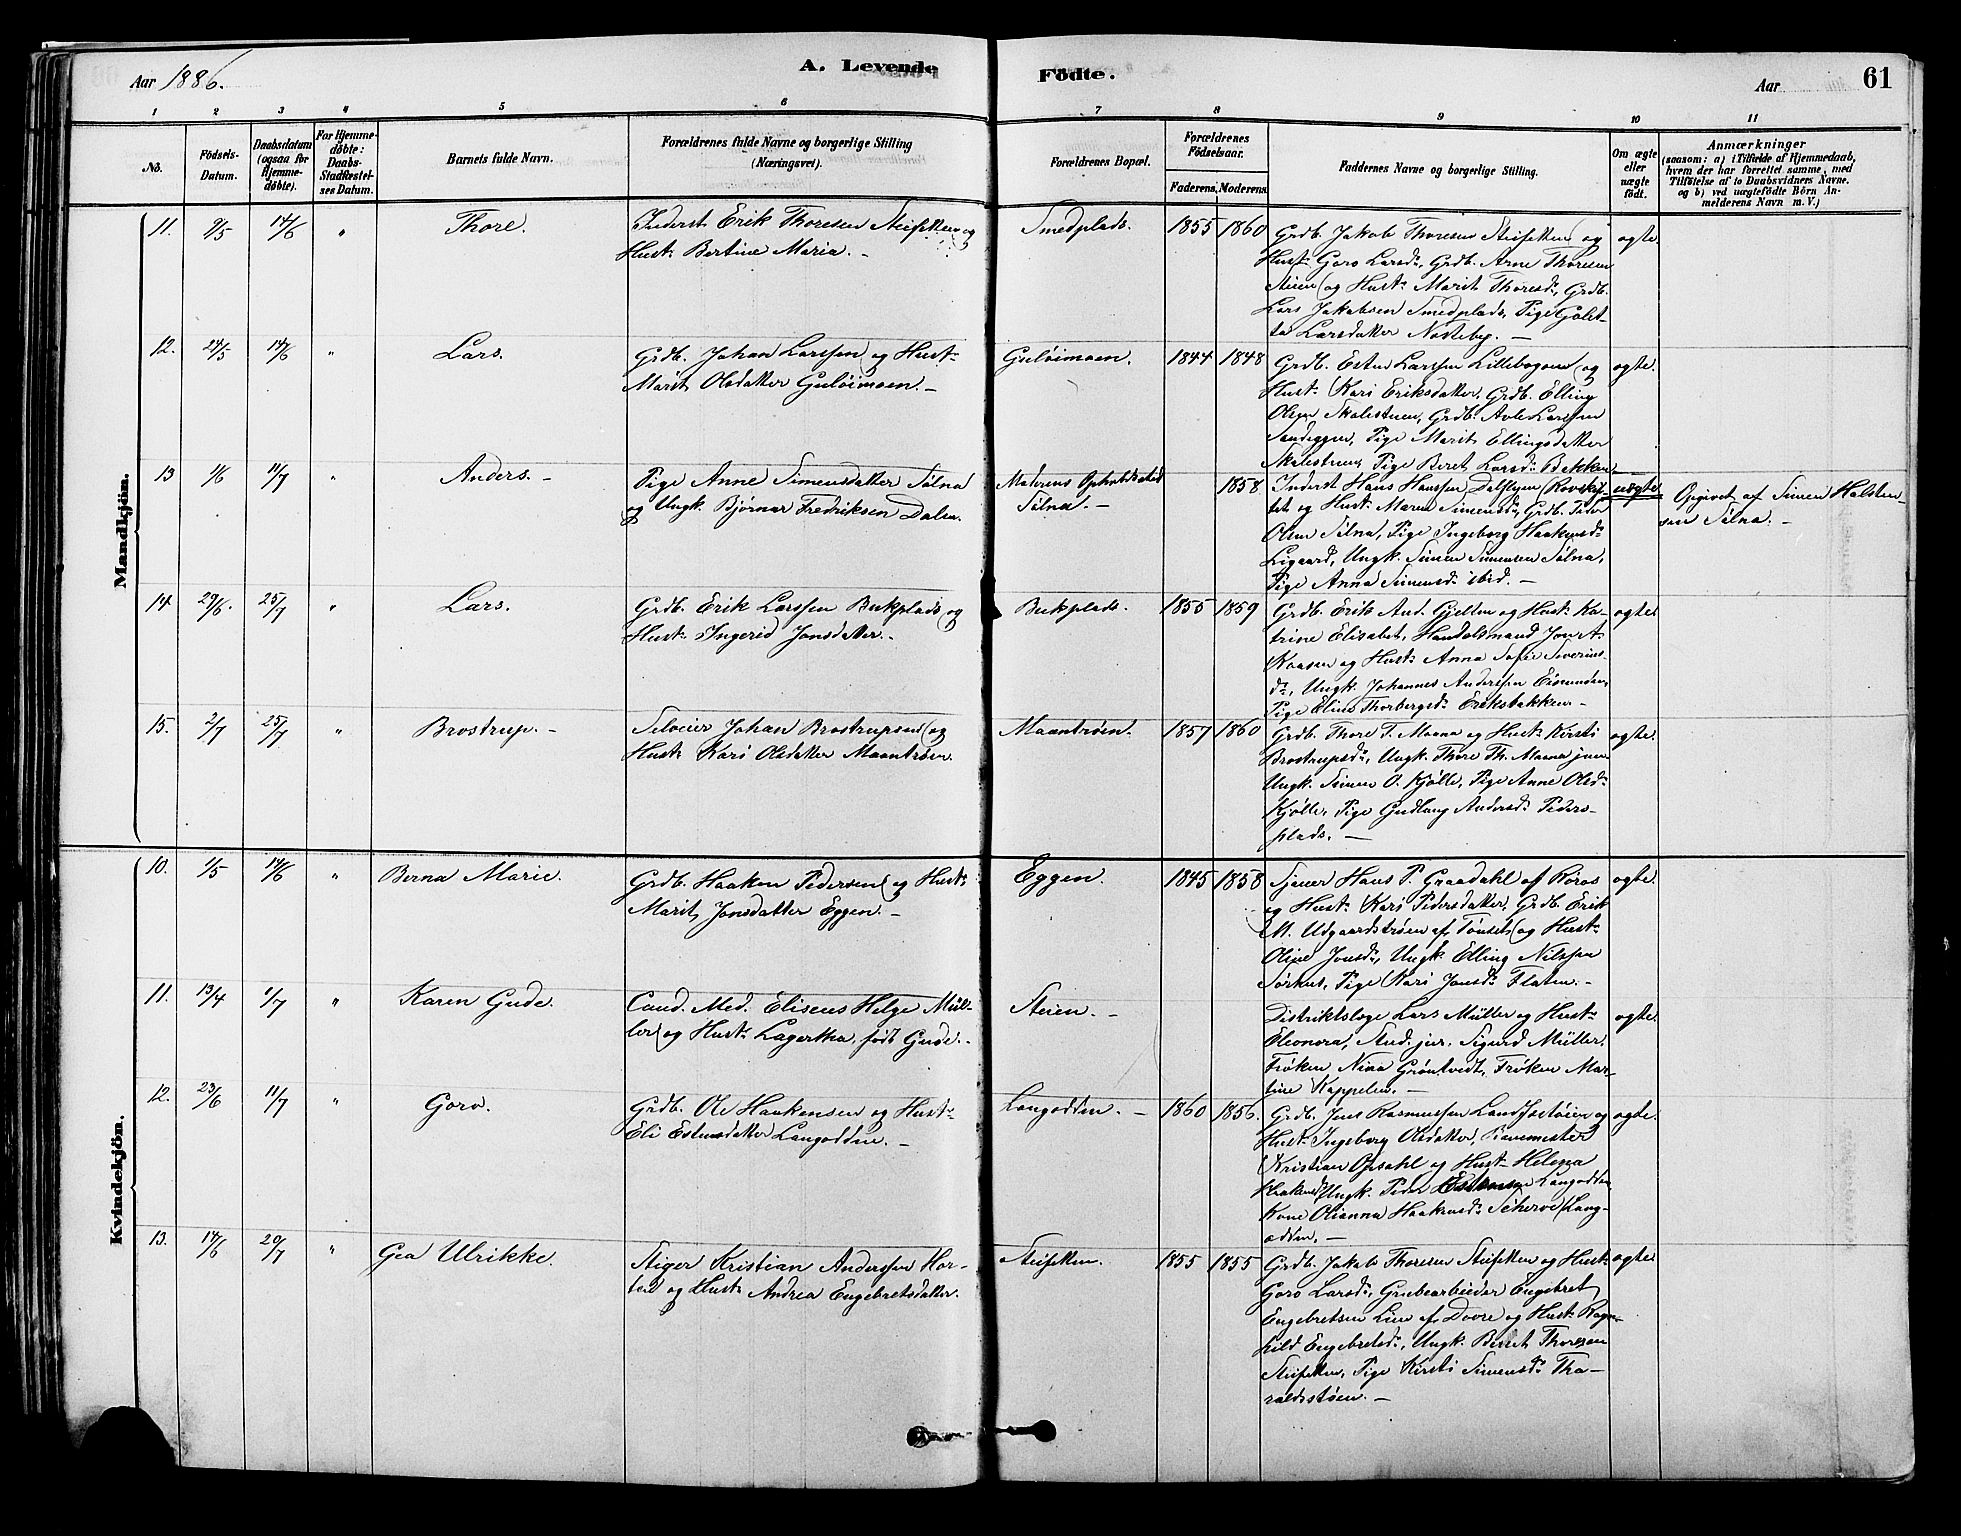 Aar 1886.
A. Levende
Födte.
Aar
61
1 2 3 4 5 6 7 8 9 10 11
No.
Födsels-
Datum.
Daabsdatum
(ogsaa for
Hjemme-
döbte).
For Hjemme-
döbte:
Daabs-
Stadfæstel-
ses Datum.
Barnets fulde Navn.
Forældrenes fulde Navne og borgerlige Stilling
(Næringsvei).
Forældrenes Bopæl.
Forældrenes
Födselsaar.
Faderens. Moderens.
Faddernes Navne og borgerlige Stilling.
Om ægte
eller
uægte
födt.
Anmærkninger
(saasom: a) i Tilfælde af Hjemmedaab,
hvem der har forrettet samme, med
Tilföielse af to Daabsvidners Navne.
og b) ved uægtefödte Börn An-
melderens Navn m. V.)
Mandkjön.
11. 9/5 14/6 " Thore.
Inderst Erik Thoresen Steifetten og
Hust: Bertine Maria. -
Smedplads. 1855 1860
Grdb. Jakob Thoresen Steifetten og
Hust: Goro Larsd:, Grdb. Arne Thoresen
Steien og Hust: Marit Thoresd:, Grdb.
Lars Jakobsen Smedplads, Pige Golet-
ta Larsdatter Nosteby. -
ægte.
12. 24/5 14/6 " Lars.
Grdb. Johan Larssen og Hust:
Marit Olsdatter Guløimoen. -
Guløimoen. 1844 1848
Grdb. Esten Larssen Lillebogoen og
Hust: Kari Eriksdatter, Grdb. Elling
Olsen Skalestuen, Grdb. Avle Larssen
Sandeggen, Pige Marit Ellingsdatter
Skalestuen, Pige Beret Larsd: Bakken. -
ægte.
13 1/6 11/7 " Anders. -
Pige Anne Simensdatter Sølna
og Ungk. Bjørnar Fredriksen Dalen.
Moderens Opholdssted
Sølna. -
1858
Inderst Hans Hanssen
og Hust: Maren Simensd:, Grdb. Peder
Olsen Sølna, Pige Ingeborg Haakensd:
Ligaard, Ungk. Simen Simensen Sølna,
Pige Anna Simensd: ibid. -
uægte
Opgivet af Simen Halsten-
sen Sølna. -
14 29/6. 25/7 " Lars.
Grdb. Erik Larssen Bukplads og
Hust: Ingerid Jonsdatter. -
Bukplads. 1855 1859
Grdb. Erik And. Gjelten og Hust: Ka-
trine Elisabet, Handelsmand Jon T.
Kaasen og Hust: Anna Sofie Severins-
d:, Ungk. Johannes Anderssen Eisunden,
Pige Eline Thorbergsd: Eriksbakken. -
ægte
15. 2/7 25/7 " Brostrup. -
Selveier Johan Brostrupsen og
Hust: Kari Olsdatter Maantrøen.
Maantrøen. 1857 1860
Grdb. Thore T. Maana og Hust: Kirsti
Brostrupsd:, Ungk. Thore Th. Maana jun.
Ungk. Simen O. Kjølle, Pige Anne Olsd:
Kjølle, Pige Gudlaug Andersd: Peders-
plads. -
ægte.
Kvindekjön.
10. 1/5 14/6 " Berna Marie.
Grdb. Haaken Pedersen og Hust:
Marit Jonsdatter Eggen. -
Eggen. 1845 1858
Sjauer Hans P. Graadahl af Røros
og Hust: Kari Pedersdatter, Grdb. Erik
M. Udgaardstrøen af Tønset og Hust:
Oline Jonsd:, Ungk. Elling Nilssen
Sørhus, Pige Kari Jonsd: Flaten. -
ægte.
11. 13/4 1/7 " Karen Gude.
Cand. Med. Eliseus Helge Mül-
ler og Hust: Lagertha, født Gude. -
Steien. -
Distriktslæge Lars Müller og Hust:
Eleonora, Stud. jur. Sigurd Müller,
Frøken Nina Grøntvedt, Frøken Mar-
tine Kappelen. -
ægte.
12. 23/6 11/7 " Goro.
Grdb. Ole Haakensen og Hust:
Eli Estensdatter Langodden. -
Langodden. - 1860 1856.
Grdb. Jens Rasmussen Landsetøien og
Hust: Ingeborg Olsdatter,
Kristian Opsahl og Hust: Helena
Ungk. Peder Estensen Langodden,
Kone Olianna Haakensd: Lang-
odden. -
ægte.
13. 14/6 20/7 " Gea Ulrikke.
Stiger Kristian Anderssen Hor-
ten og Hust: Andrea Engebretsdatter.
Steifetten. 1855 1855
Grdb. Jakob Thoresen Steifetten og Hust:
Goro Larsd:, Grubearbeider Engebret
Engebretsen Lien af Dovre og Hust: Ragn-
hild Engebretsd:, Ungk. Berset Thoresen
Steifetten, Pige Kirsti Simensd: Tha-
raldsstøen. -
ægte